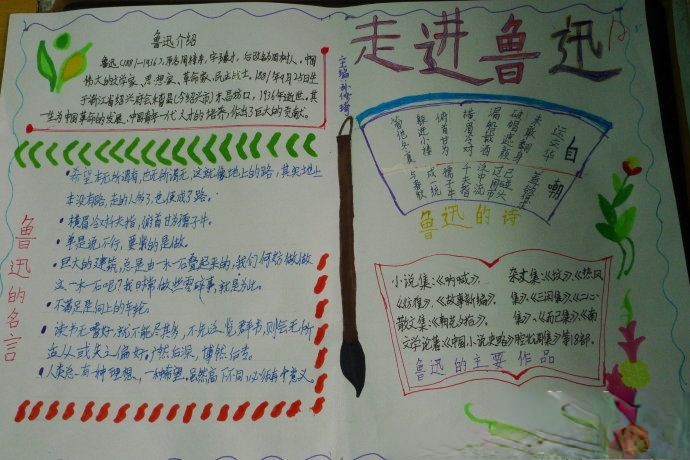 走进鲁迅
主编:孙修琦
鲁迅介绍
鲁迅(1881-1936),原名周樟寿,字豫才,后改名周树人,中国
伟大的文学家、思想家、革命家、民主战士。1881年9月25日生
于浙江省绍兴府会稽县(今绍兴市)东昌坊口,1936年逝世。其
一生为中国革命的发展、中国青年一代人才的培养,作出了巨大的贡献。
鲁迅的名言
希望本无所谓有,也无所谓无,这就像地上的路,其实地上
本没有路,走的人多了,也便成了路。
横眉冷对千夫指,俯首甘为孺子牛。
单是说不行,要紧的是做。
巨大的建筑,总是由一木一石叠起来的,我们何妨做做
这一木一石呢?我时常做些零碎事,就是为此。
不满足是向上的车轮。
读书无嗜好,就不能尽其多,不先泛览群书,则会无所
适从或失之偏好。广然后深,博然后专。
人类总有一种理想,一种希望。虽然高下不同,必须有个意义。
自嘲
运交华盖欲何求
未敢翻身已碰头
破帽遮颜过闹市
漏船载酒泛中流
横眉冷对千夫指
俯首甘为孺子牛
躲进小楼成一统
管他冬夏与春秋
鲁迅的诗
小说集:《呐喊》、
《彷徨》、《故事新编》、
散文集:《朝花夕拾》、
文学论著《中国小说史略》
杂文集:《坟》、《热风
集》、《三闲集》、《二心
集》、《而已集》、《南
腔北调集》等18部、
鲁迅的主要作品